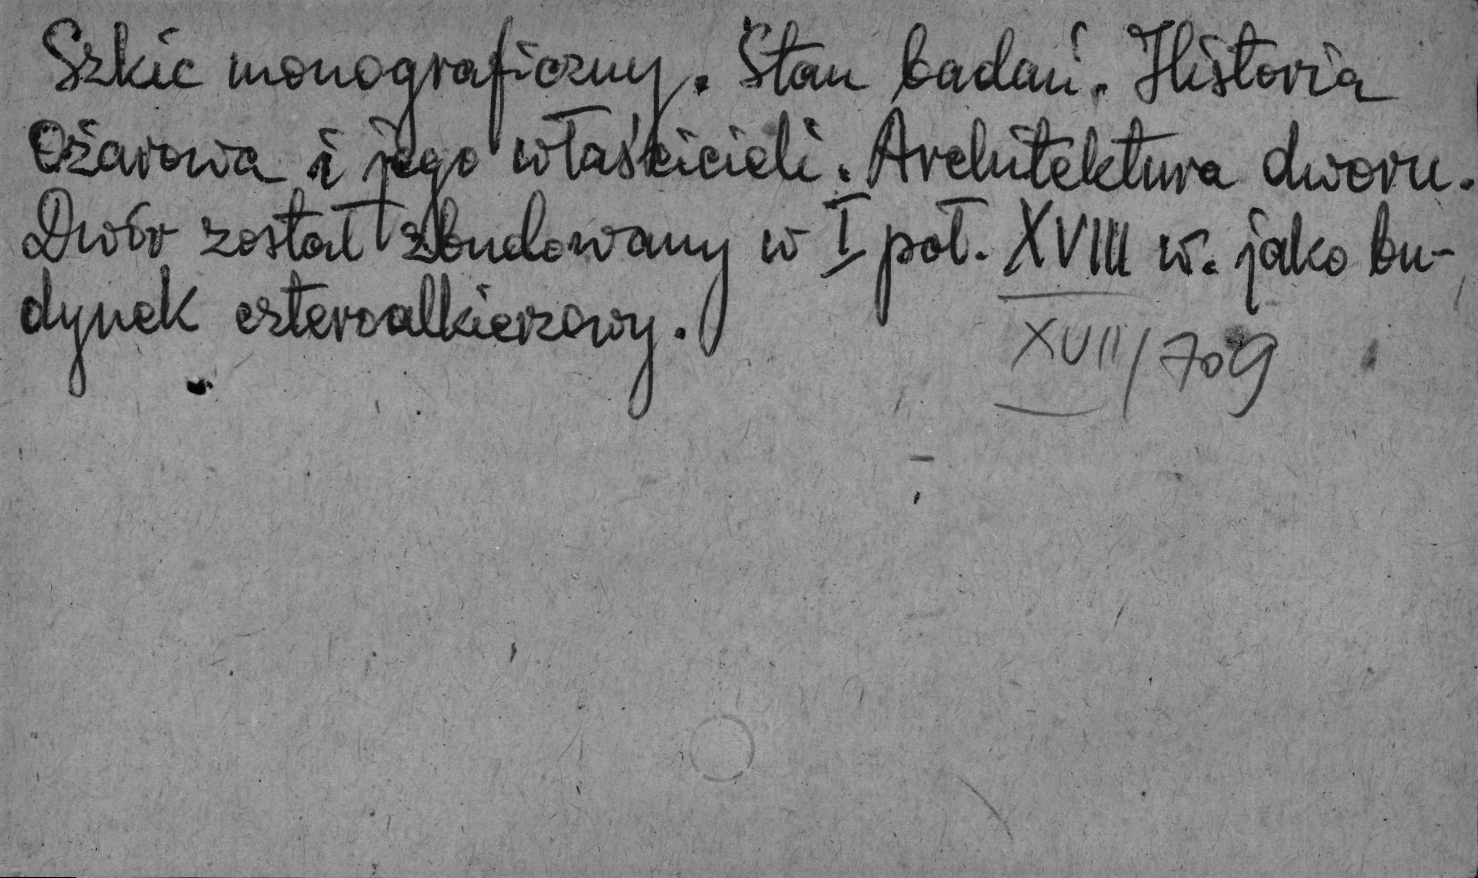 Szkic monograficzny. Stan badań. Historia
Ożarowa i jego właścicieli. Architektura dworu.
Dwór został zbudowany w I poł. XVIII w. jako bu-
dynek czteroalkierzowy.
XVII/709